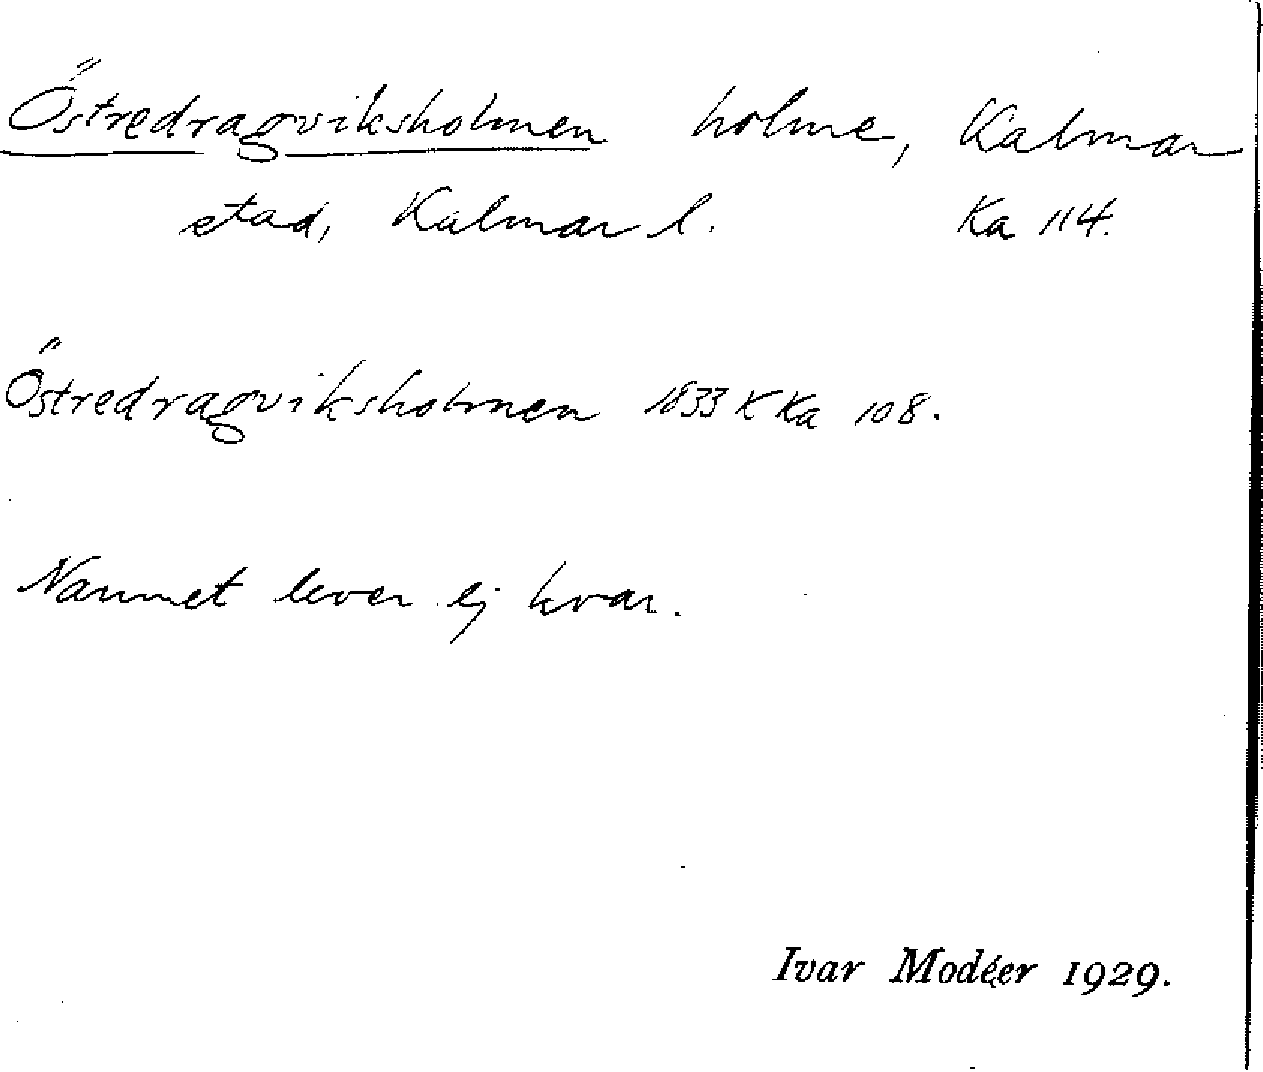 Östredragviksholmen holme, Kalmar
stad, Kalmar l. Ka 114.
Östredragviksholmen 1833 K Ka 108.
Namnet lever ej kvar.
Ivar Modéer 1929.